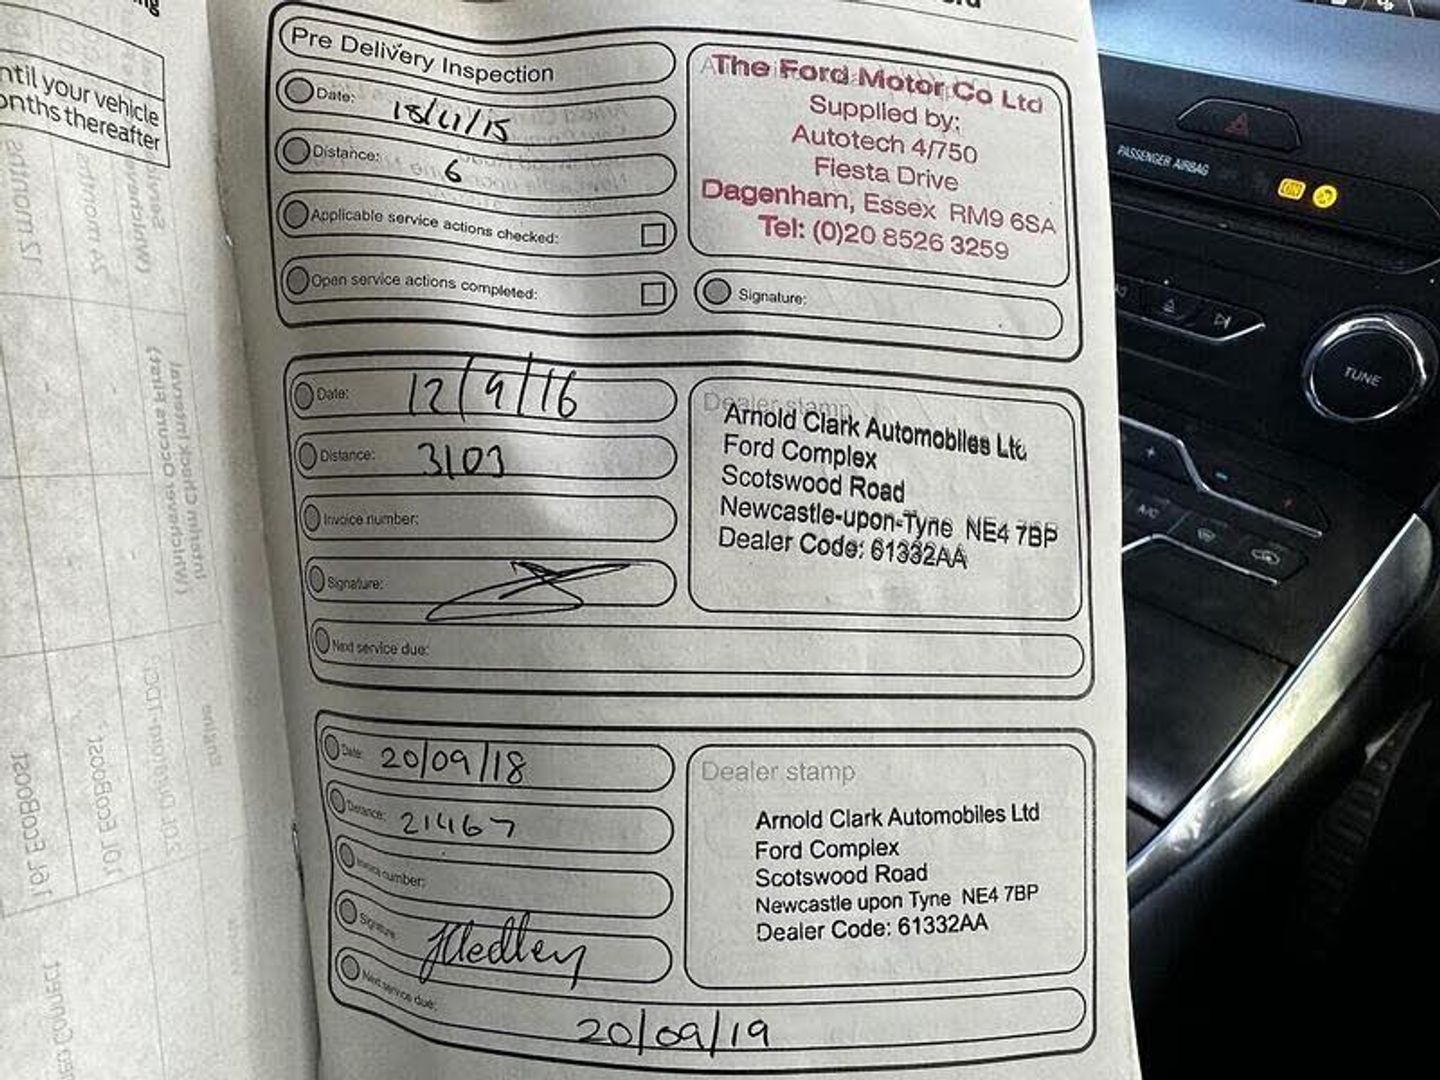 ntil your vehicle
onths thereafter
Pre Delivery Inspection
Date: 18/11/15
Distance: 6
Applicable service actions checked:
Open service actions completed:
The Ford Motor Co Ltd
Supplied by:
Autotech 4/750
Fiesta Drive
Dagenham, Essex RM9 6SA
Tel: (0)20 8526 3259
Signature:
Date: 12/9/16
Distance: 3103
Invoice number:
Signature:
Next service due:
Dealer stamp
Arnold Clark Automobiles Ltd
Ford Complex
Scotswood Road
Newcastle-upon-Tyne NE4 7BP
Dealer Code: 61332AA
Date: 20/09/18
Distance: 21467
Invoice number:
Signature: JCHedley
Next service due: 20/09/19
Dealer stamp
Arnold Clark Automobiles Ltd
Ford Complex
Scotswood Road
Newcastle upon Tyne NE4 7BP
Dealer Code: 61332AA
PASSENGER AIRBAG
TUNE
A/C